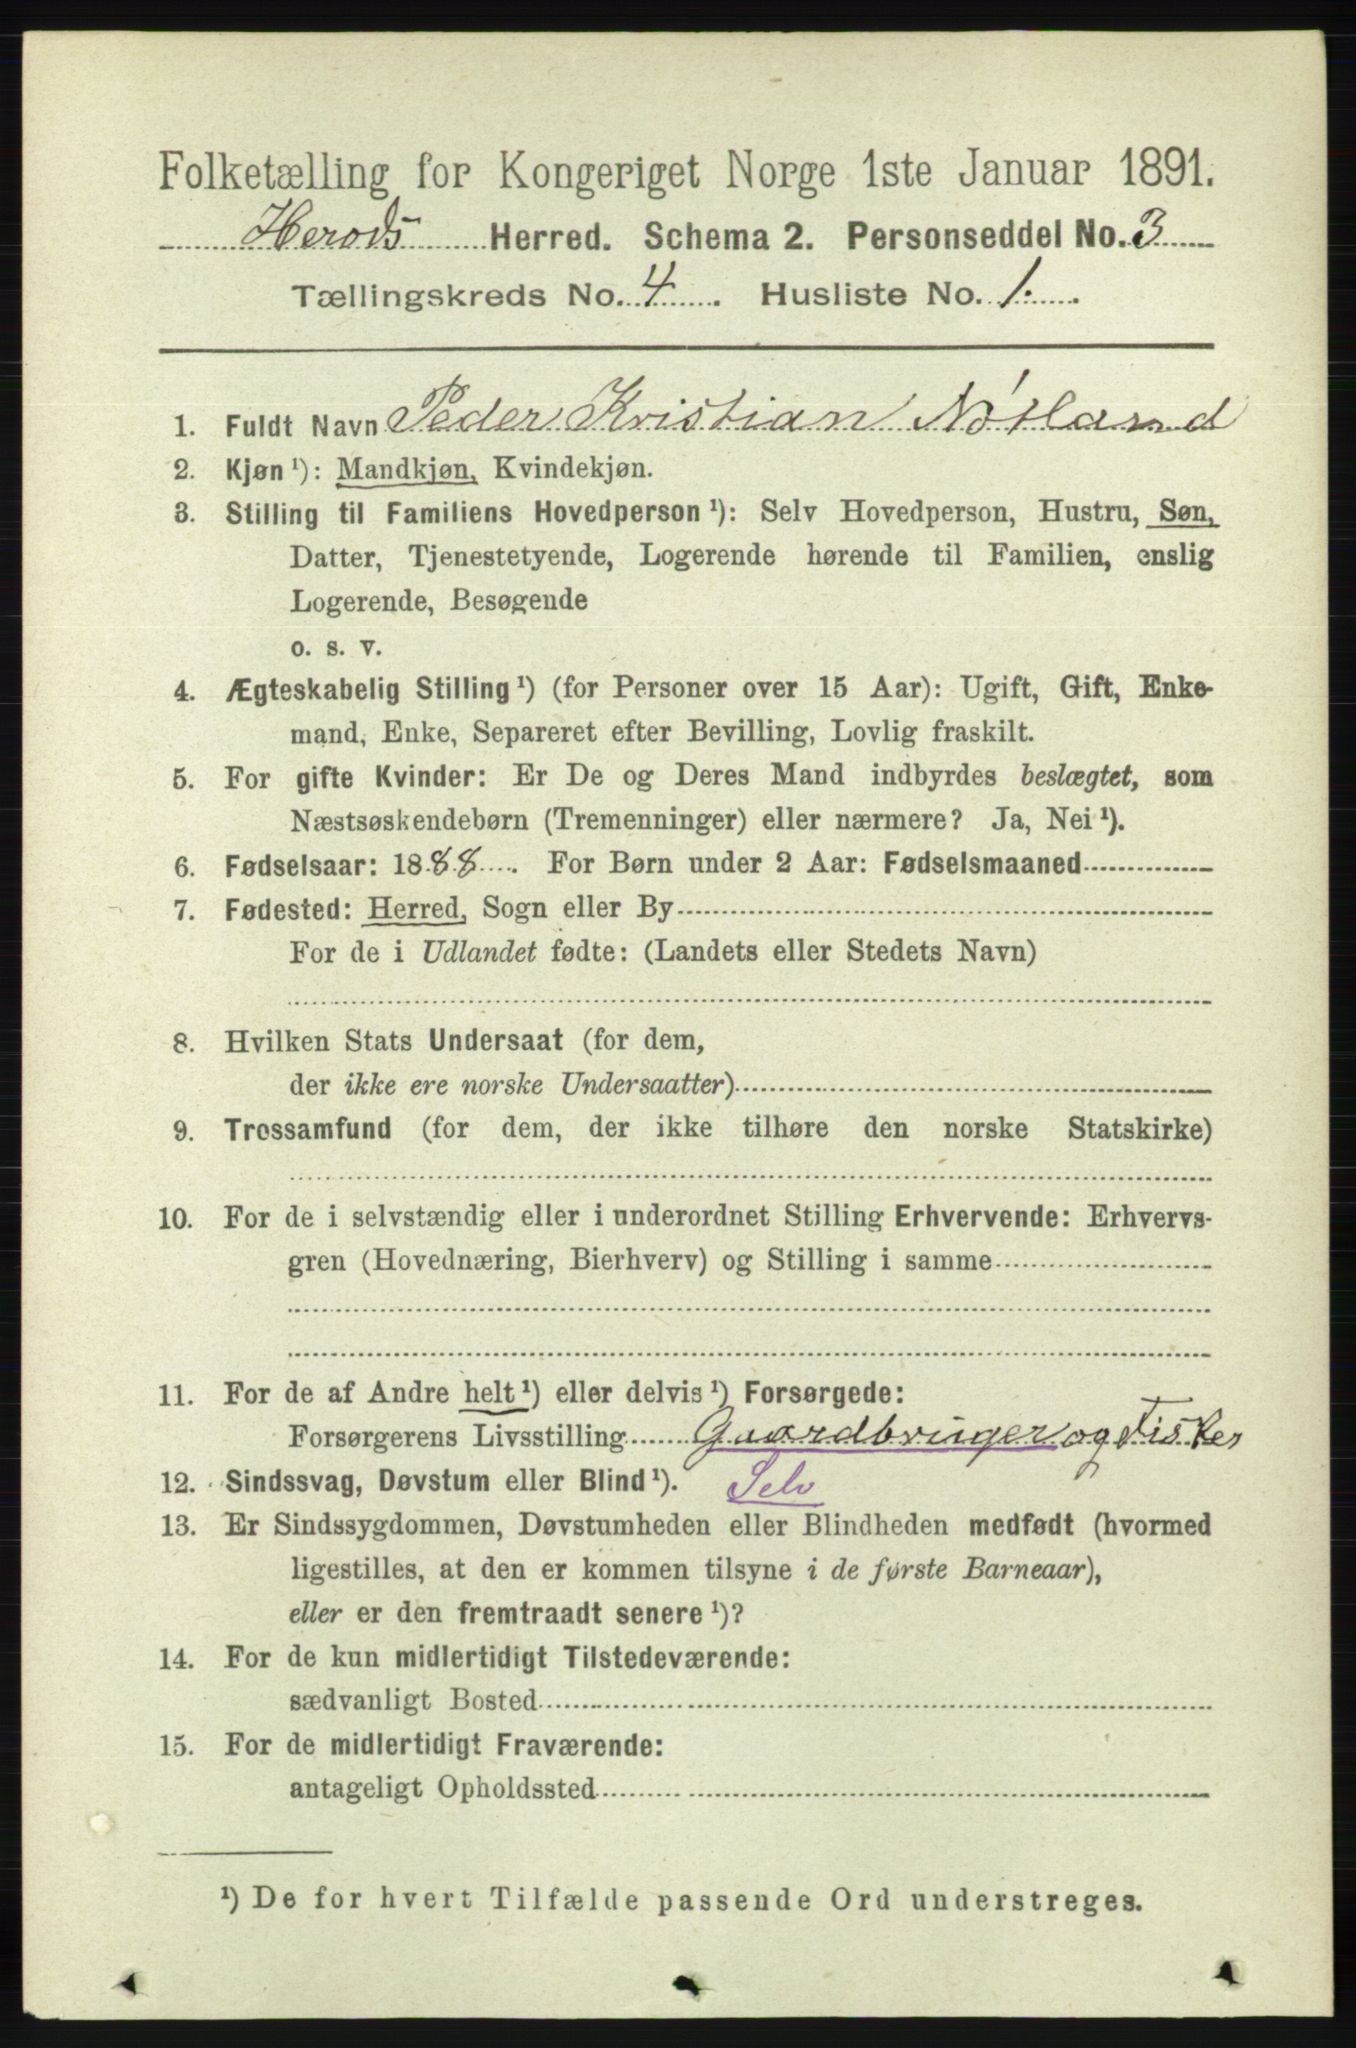 Folketælling for Kongeriget Norge 1ste Januar 1891.
Herøds Herred. Schema 2. Personseddel No. 3
Tællingskreds No. 4. Husliste No. 1.
1. Fuldt Navn Peder Kristian Nótland
2. Kjøn¹): Mandkjøn, Kvindekjøn.
3. Stilling til Familiens Hovedperson¹): Selv Hovedperson, Hustru, Søn,
Datter, Tjenestetyende, Logerende hørende til Familien, enslig
Logerende, Besøgende
o. s. v.
4. Ægteskabelig Stilling¹) (for Personer over 15 Aar): Ugift, Gift, Enke-
mand, Enke, Separeret efter Bevilling, Lovlig fraskilt.
5. For gifte Kvinder: Er De og Deres Mand indbyrdes beslægtet, som
Næstsøskendebørn (Tremenninger) eller nærmere? Ja, Nei¹).
6. Fødselsaar: 1888. For Børn under 2 Aar: Fødselsmaaned
7. Fødested: Herred, Sogn eller By
For de i Udlandet fødte: (Landets eller Stedets Navn)
8. Hvilken Stats Undersaat (for dem,
der ikke ere norske Undersaatter)
9. Trossamfund (for dem, der ikke tilhøre den norske Statskirke)
10. For de i selvstændig eller i underordnet Stilling Erhvervende: Erhvervs-
gren (Hovednæring, Bierhverv) og Stilling i samme
11. For de af Andre helt¹) eller delvis¹) Forsørgede:
Forsørgerens Livsstilling Gaardbruger og Fisker
12. Sindssvag, Døvstum eller Blind¹). Selv
13. Er Sindssygdommen, Døvstumheden eller Blindheden medfødt (hvormed
ligestilles, at den er kommen tilsyne i de første Barneaar),
eller er den fremtraadt senere¹)?
14. For de kun midlertidigt Tilstedeværende:
sædvanligt Bosted
15. For de midlertidigt Fraværende:
antageligt Opholdssted
¹) De for hvert Tilfælde passende Ord understreges.